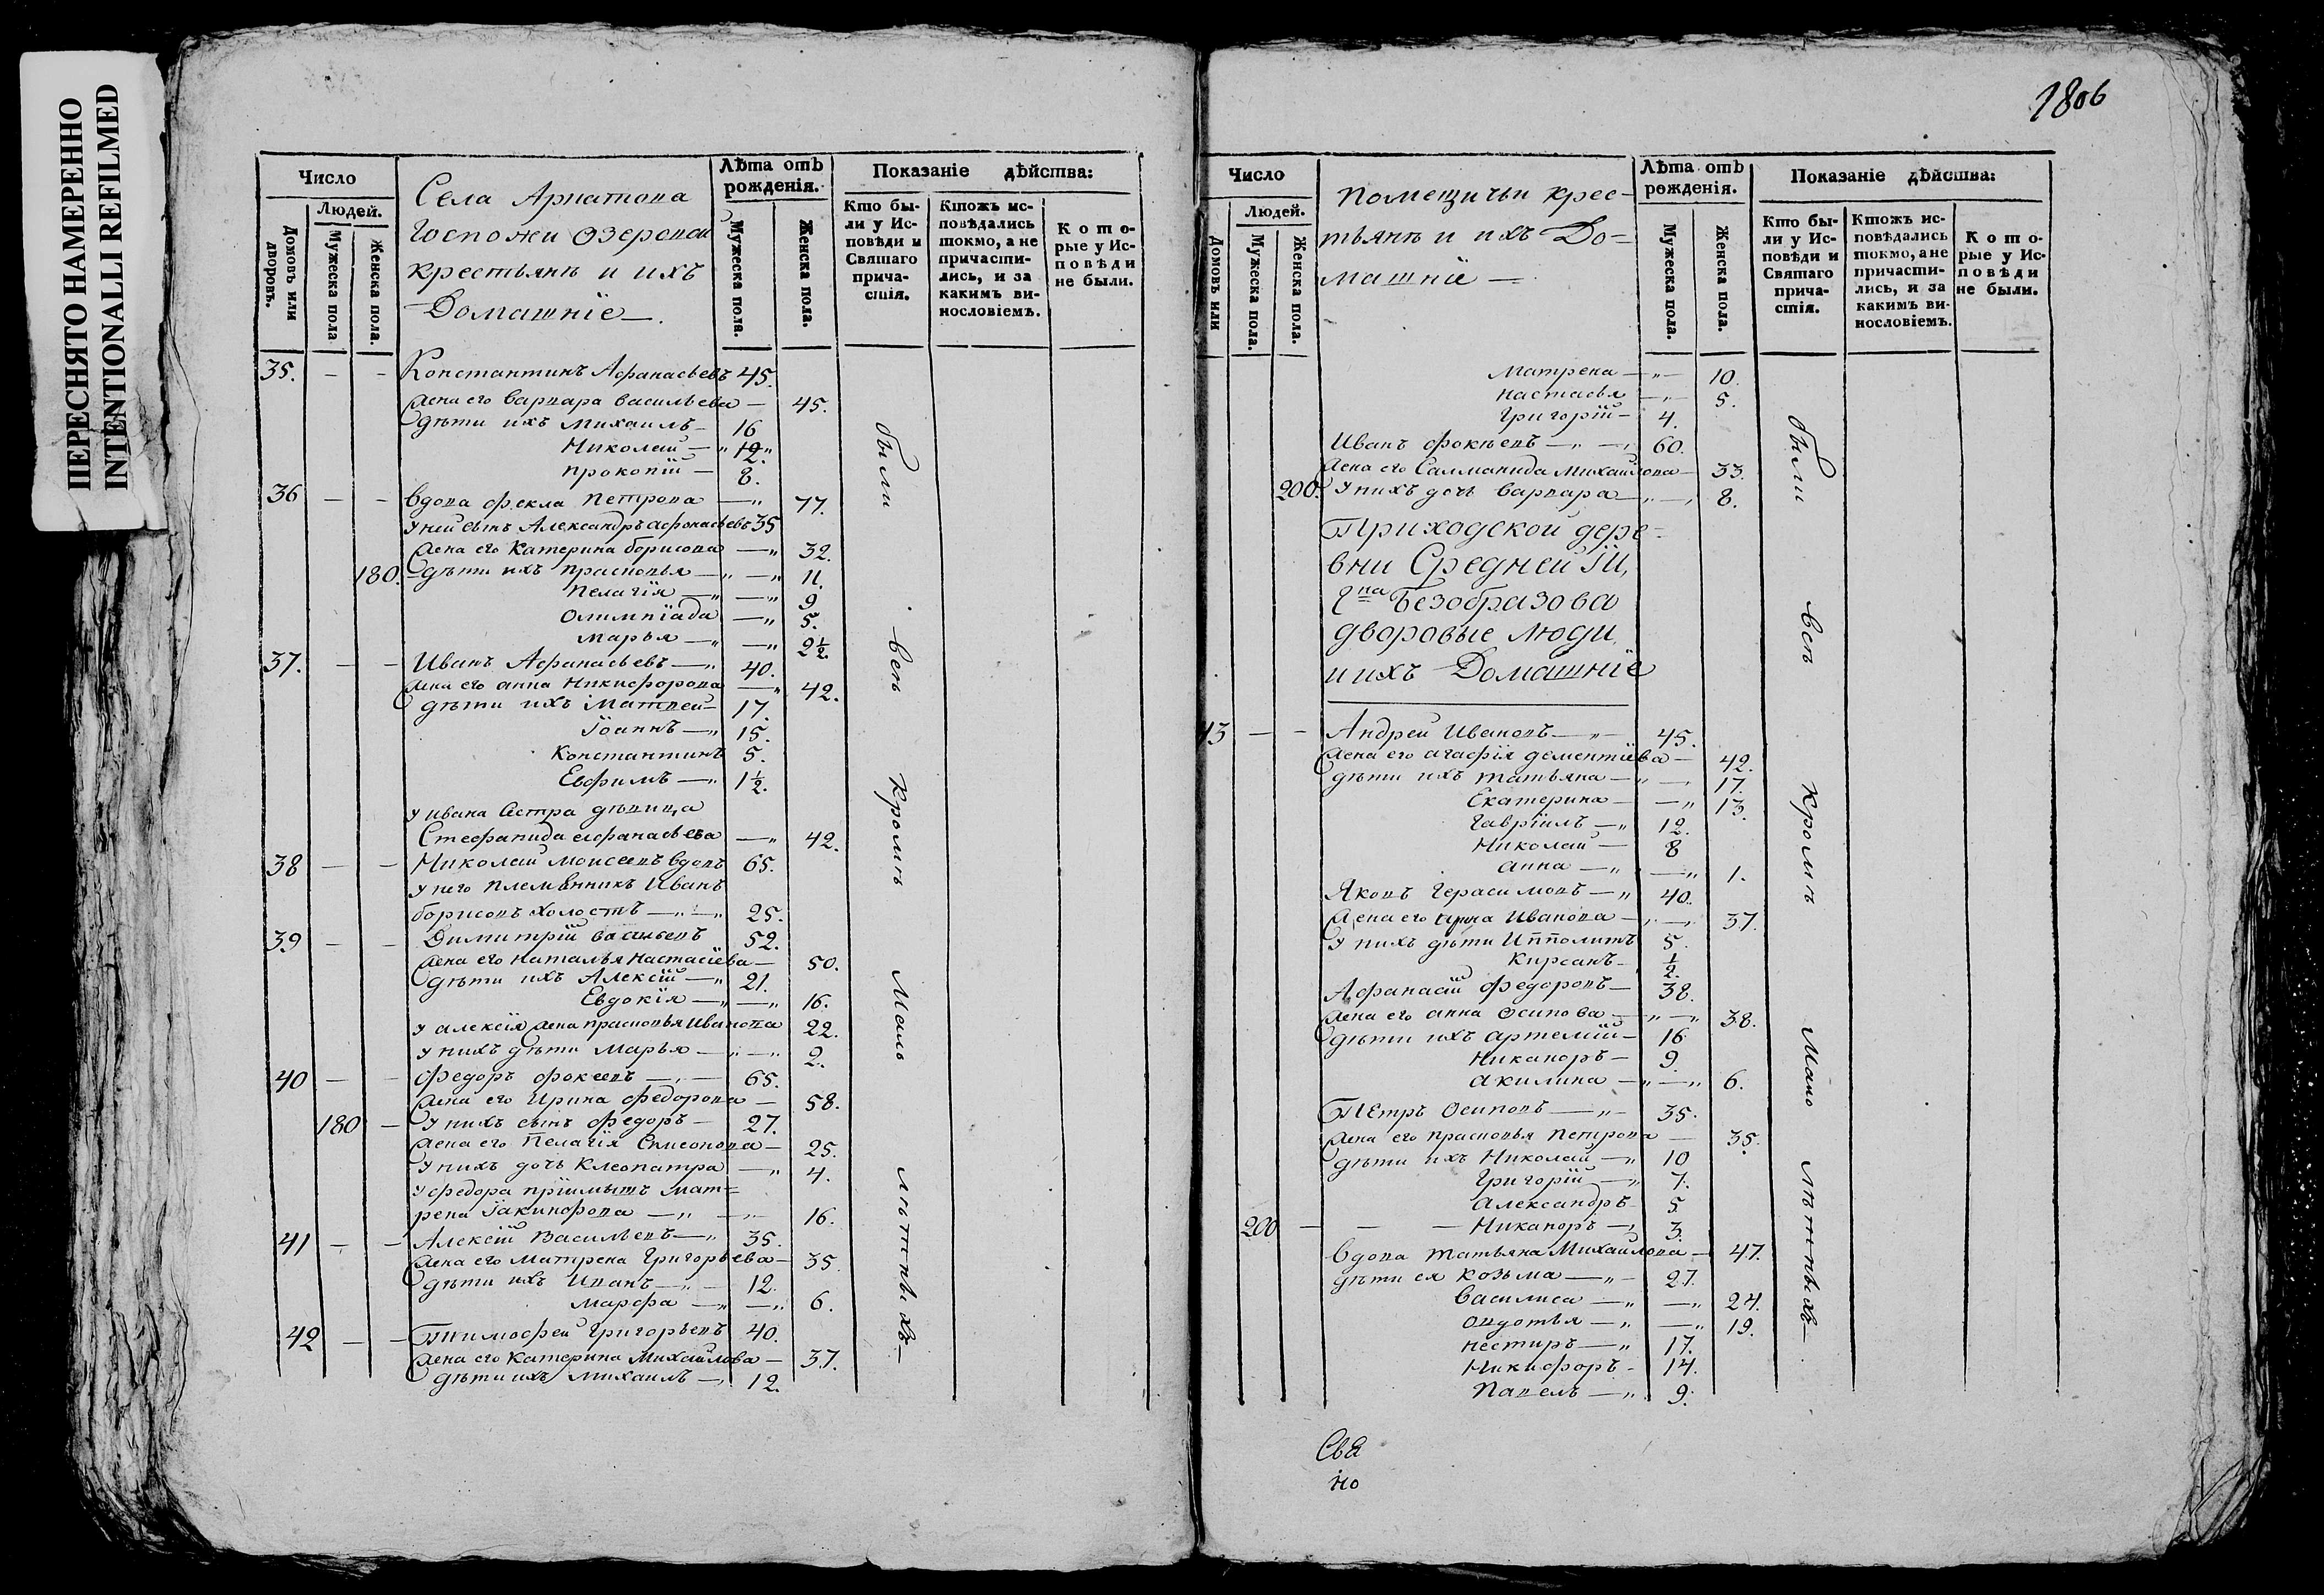 ПЕРЕСНЯТО НАМЕРЕННО
INTENTIONALLI REFILMED
Число
Людей.
Домовъ или дворовъ.
Мужеска пола
Женска пола.
Села Арнатова
Госпожи Озеровой
крестьянъ и ихъ
Домашніе
Лѣта отъ рожденія.
Мужеска пола.
Женска пола.
Показаніе дѣйства:
Кто бы-
ли у Ис-
повѣди и
Святаго
прича-
стія.
Ктожъ ис-
повѣдались
токмо, а не
причасти-
лись, и за
какимъ ви-
нословіемъ.
Кото-
рые у Ис-
повѣди
не были.
35. — — Константинъ Афанасьевъ 45.
Жена его Варвара Васильева — 45.
Дѣти ихъ Михаилъ — 16
Николай — 12.
Прокопій — 8.
36 — — Вдова Фекла Петрова — 77.
У ней сынъ Александръ Афонасьевъ 35
Жена его Катерина Борисова — 32.
180. Дѣти ихъ Прасковья — 11.
Пелагія — 9
Олимпіада — 5.
Марья — 2½.
37. — — Иванъ Афанасьевъ — 40.
Жена его Анна Никифорова — 42.
Дѣти ихъ Матвей — 17.
Іоаннъ — 15.
Константинъ 5.
Евфимъ — 1½.
У Ивана Сестра дѣвица
Стефанида Афанасьева — 42.
38 — — Николай Моисеевъ вдовъ 65.
У него племянникъ Иванъ
Борисовъ холостъ — 25.
39 — — Димитрій Васильевъ 52.
Жена его Наталья Настасіева — 50.
Дѣти ихъ Алексій — 21.
Евдокія — 16.
У Алексія жена Прасковья Иванова 22.
У нихъ дѣти Марья — 2.
40 — — Федоръ Фокеевъ — 65.
Жена его Ирина Федорова — 58.
180 — У нихъ сынъ Федоръ — 27.
Жена его Пелагія Симеонова — 25.
У нихъ дочь Клеопатра — 4.
У Федора пріимышъ Мат=
рена Іакинфова — 16.
41 — — Алексій Васильевъ — 35.
Жена его Матрена Григорьева — 35
Дѣти ихъ Иванъ — 12.
Марфа — 6.
42 — — Тимофей Григорьевъ 40.
Жена его Катерина Михаилова — 37.
Дѣти ихъ Михаилъ — 12.
были всѣ кромѣ малолѣтныхъ
1806
Число
Людей.
Домовъ или
Мужеска пола.
Женска пола.
Помещичьи крес-
тьянъ и ихъ До=
машніе —
Лѣта отъ рожденія.
Мужеска пола.
Женска пола.
Показаніе дѣйства:
Кто бы-
ли у Ис-
повѣди и
Святаго
прича-
стія.
Ктожъ ис-
повѣдались
токмо, а не
причасти-
лись, и за
какимъ ви-
нословіемъ.
Кото-
рые у Ис-
повѣди
не были.
Матрена — 10.
Настасья — 5.
Григорій — 4.
Иванъ Фокѣевъ — 60.
Жена его Саломанида Михаилова — 33.
200. У нихъ дочь Варвара — 8.
Приходской дере=
вни Средней
гна Безобразова
дворовые люди
и ихъ Домашніе
43 — — Андрей Ивановъ — 45.
Жена его Агафія Дементіева — 42.
Дѣти ихъ Татьяна — 17.
Екатерина — 13.
Гавріилъ — 12.
Николай — 8
Анна — 1.
Яковъ Герасимовъ — 40.
Жена его Иванова — 37.
У нихъ дѣти Ипполитъ 5.
Кирсанъ — ½.
Афанасій Федоровъ — 38.
Жена его Анна Осипова — 38.
Дѣти ихъ Артемій — 16
Никаноръ — 9.
Акилина — 6.
Петръ Осиповъ — 35.
Жена его Прасковья Петрова — 35.
Дѣти ихъ Николай — 10
Григорій — 7.
Александръ 5
200 — — — Никаноръ — 3.
Вдова Татьяна Михаилова — 47.
Дѣти ея Козьма — 27.
Василиса — 24.
Авдотья — 19.
Нестиръ — 17.
Никифоръ — 14.
Павелъ — 9.
были всѣ кромѣ малолѣтныхъ
но